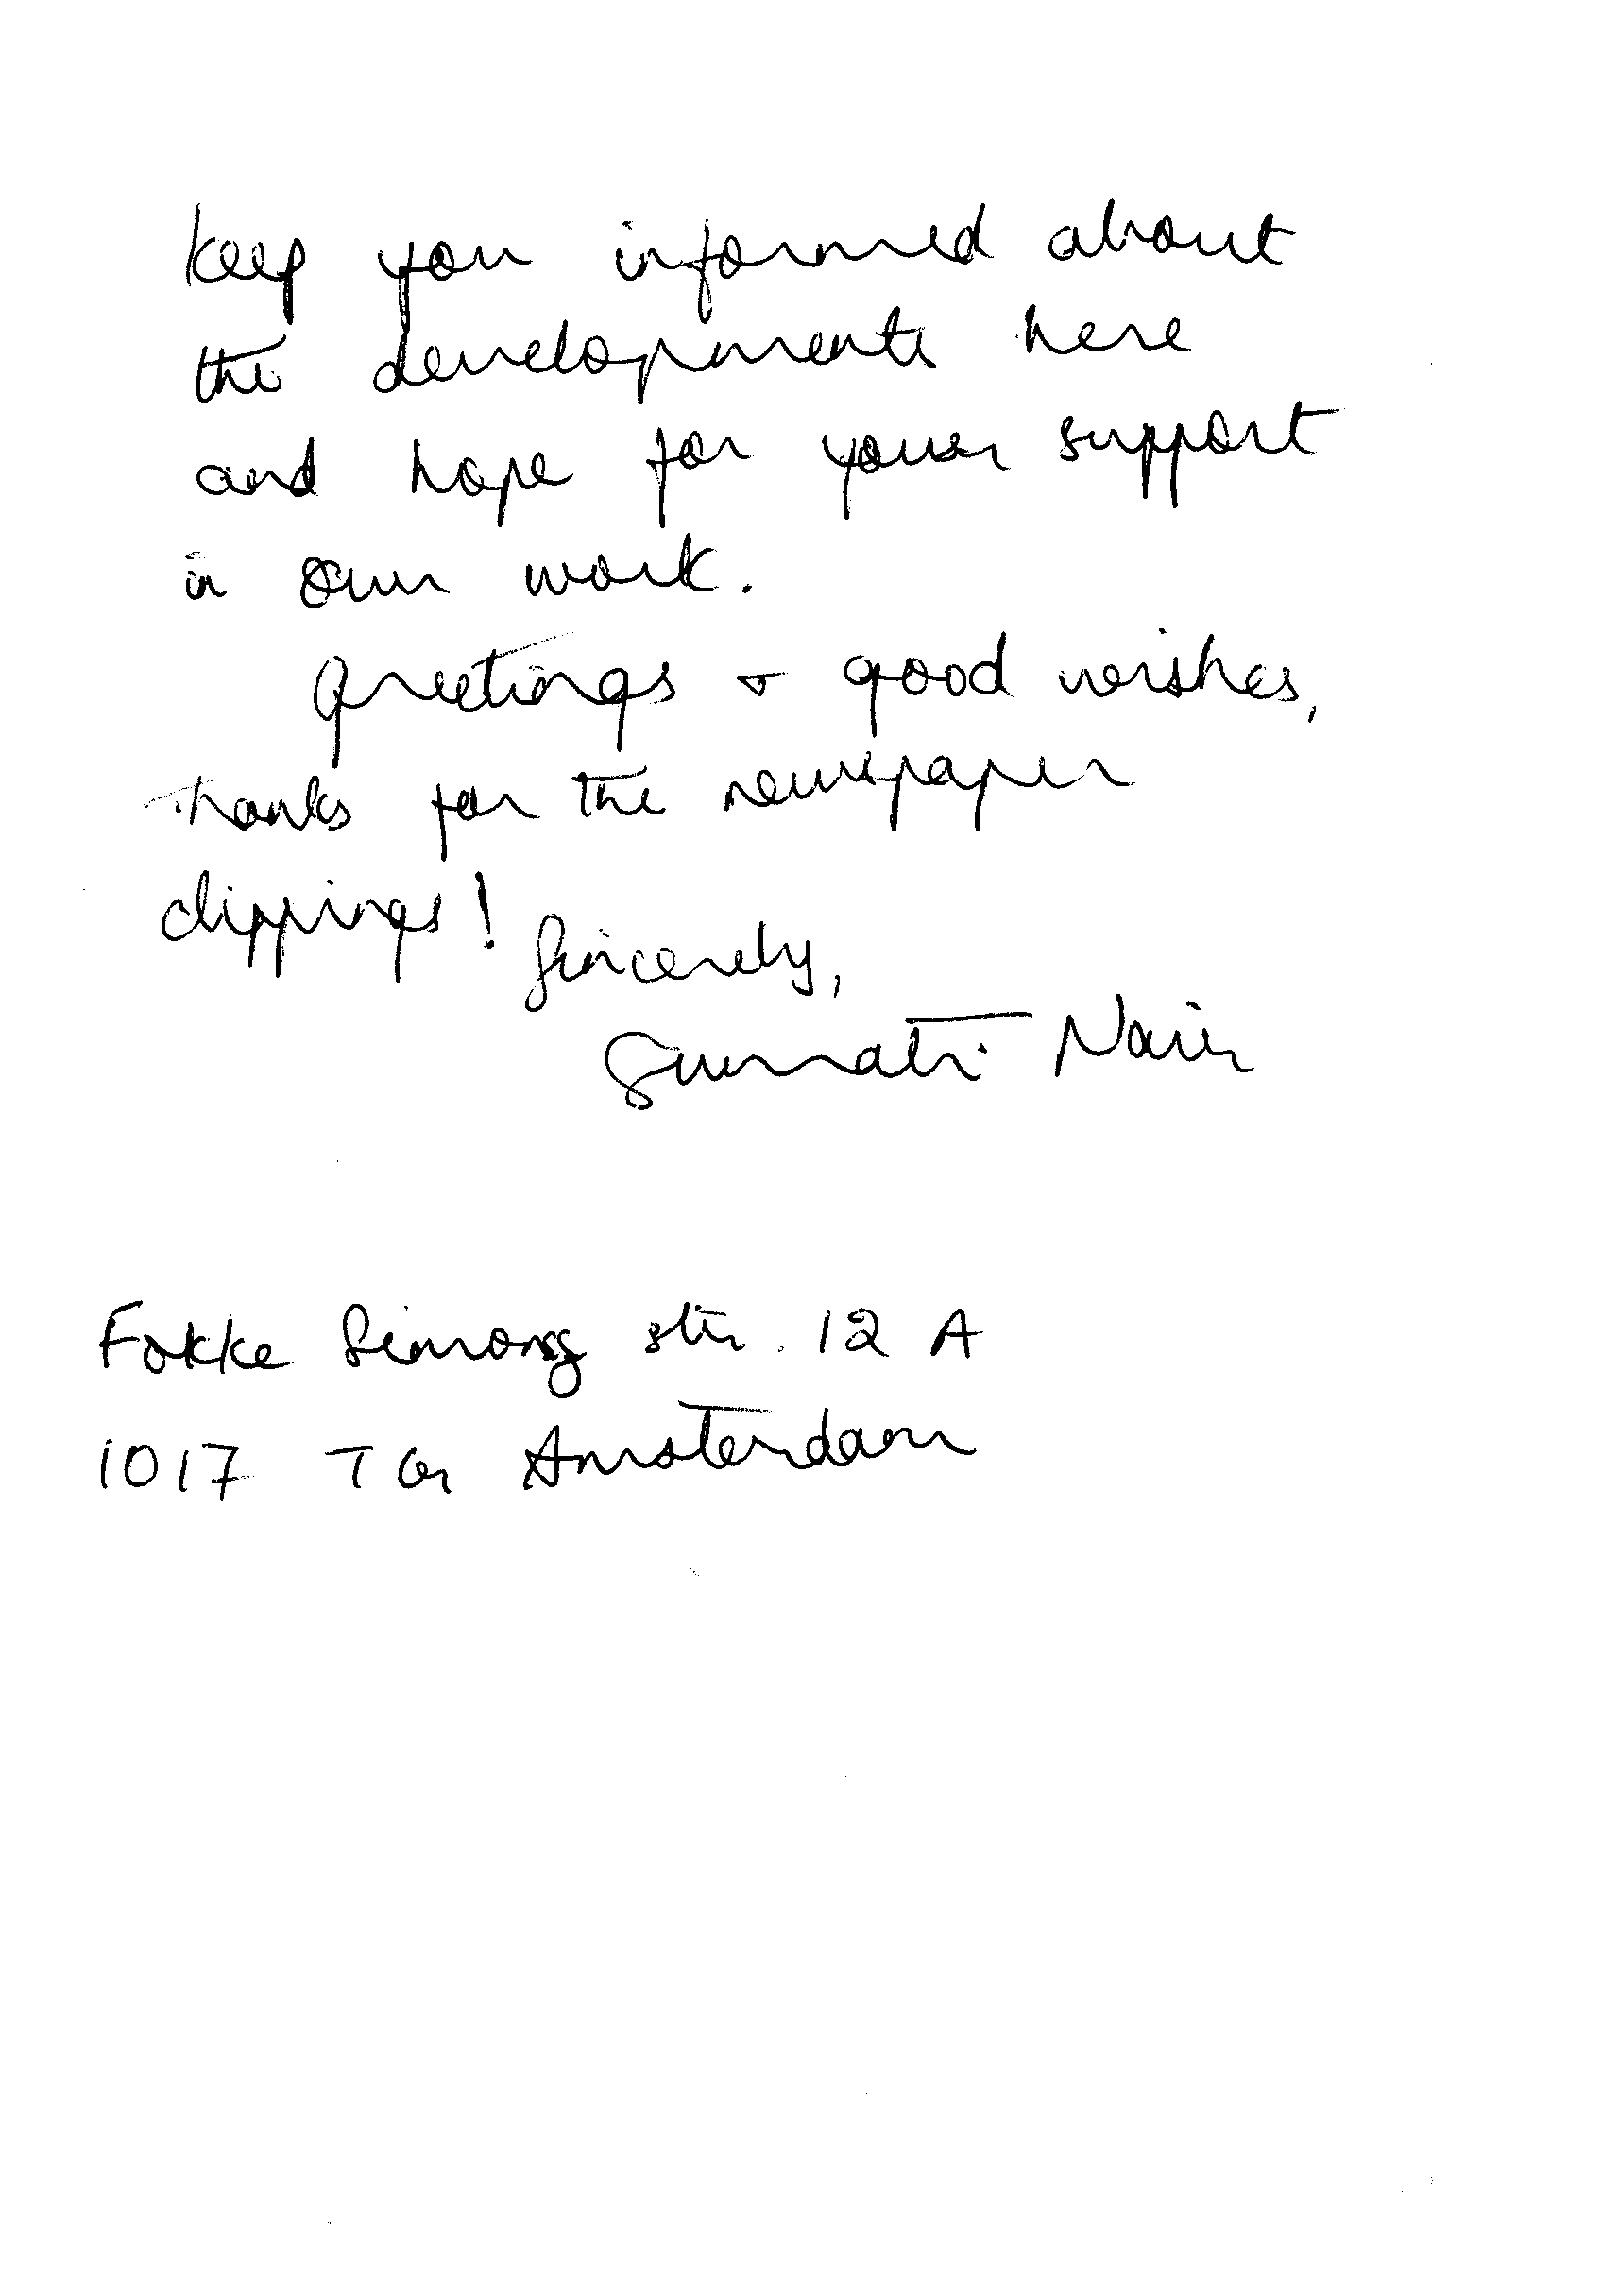 keep you informed about
the developments here
and hope for your support
in our work.
Greetings & good wishes,
Thanks for the newspaper
clippings!
Sincerely,
Sumati Nair
Fokke Simonsz str. 12 A
1017 TG Amsterdam